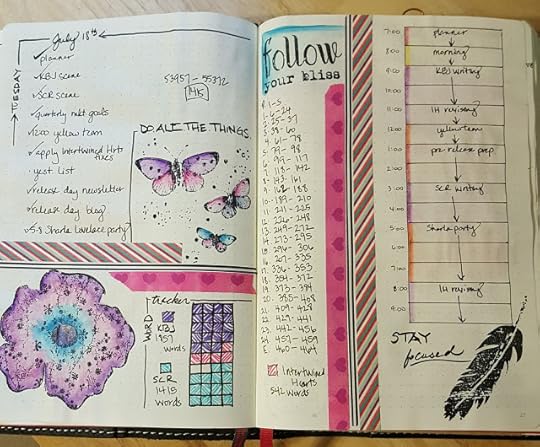 July 18th
TUESDAY
planner
KBJ scene
SCR scene
quarterly mkt goals
1200 yellow team
apply Intertwined Hrts
fixes
yest list
release day newsletter
release day blog
5-8 Sharla Lovelace party
53957 - 55372
DO ALL THE THINGS
WORD
tracker
KBJ
1957
words
SCR
1415
words
follow
your bliss
P. 1-5
1. 6-24
2. 25-37
3. 38-60
4. 61-78
5. 79-98
6. 99-117
7. 118-142
8. 143-161
9. 162-188
10. 189-210
11. 211-225
12. 226-248
13. 249-272
14. 273-295
15. 296-306
16. 307-335
17. 336-353
18. 354-372
19. 373-384
20. 385-408
21. 409-428
22. 429-441
23. 442-456
24. 457-459
E. 460-464
Intertwined
Hearts
542 words
7:00 planner
8:00 morning
9:00 KBJ writing
10:00
11:00 IH revising
12:00 yellow team
1:00 pre-release prep
2:00
3:00 SCR writing
4:00
5:00 Sharla party
6:00
7:00
8:00 IH revising
9:00
STAY
focused